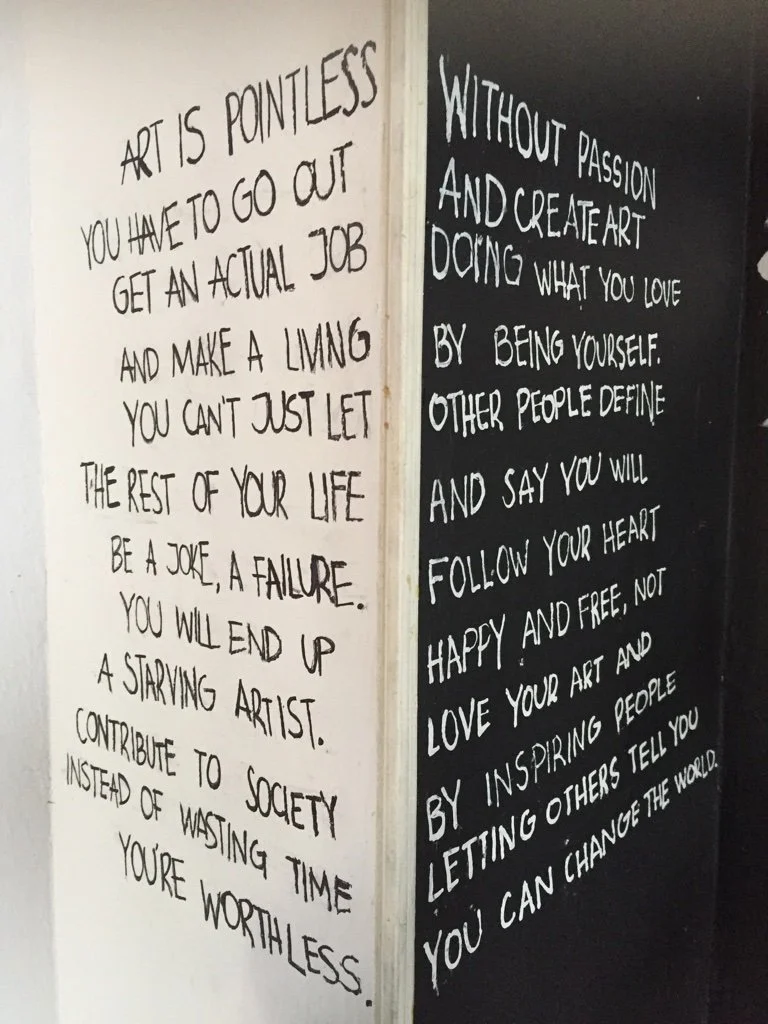 ART IS POINTLESS WITHOUT PASSION
YOU HAVE TO GO OUT AND CREATE ART
GET AN ACTUAL JOB DOING WHAT YOU LOVE
AND MAKE A LIVING BY BEING YOURSELF.
YOU CAN'T JUST LET OTHER PEOPLE DEFINE
THE REST OF YOUR LIFE AND SAY YOU WILL
BE A JOKE, A FAILURE. FOLLOW YOUR HEART
YOU WILL END UP HAPPY AND FREE, NOT
A STARVING ARTIST. LOVE YOUR ART AND
CONTRIBUTE TO SOCIETY BY INSPIRING PEOPLE
INSTEAD OF WASTING TIME LETTING OTHERS TELL YOU
YOU'RE WORTHLESS. YOU CAN CHANGE THE WORLD.